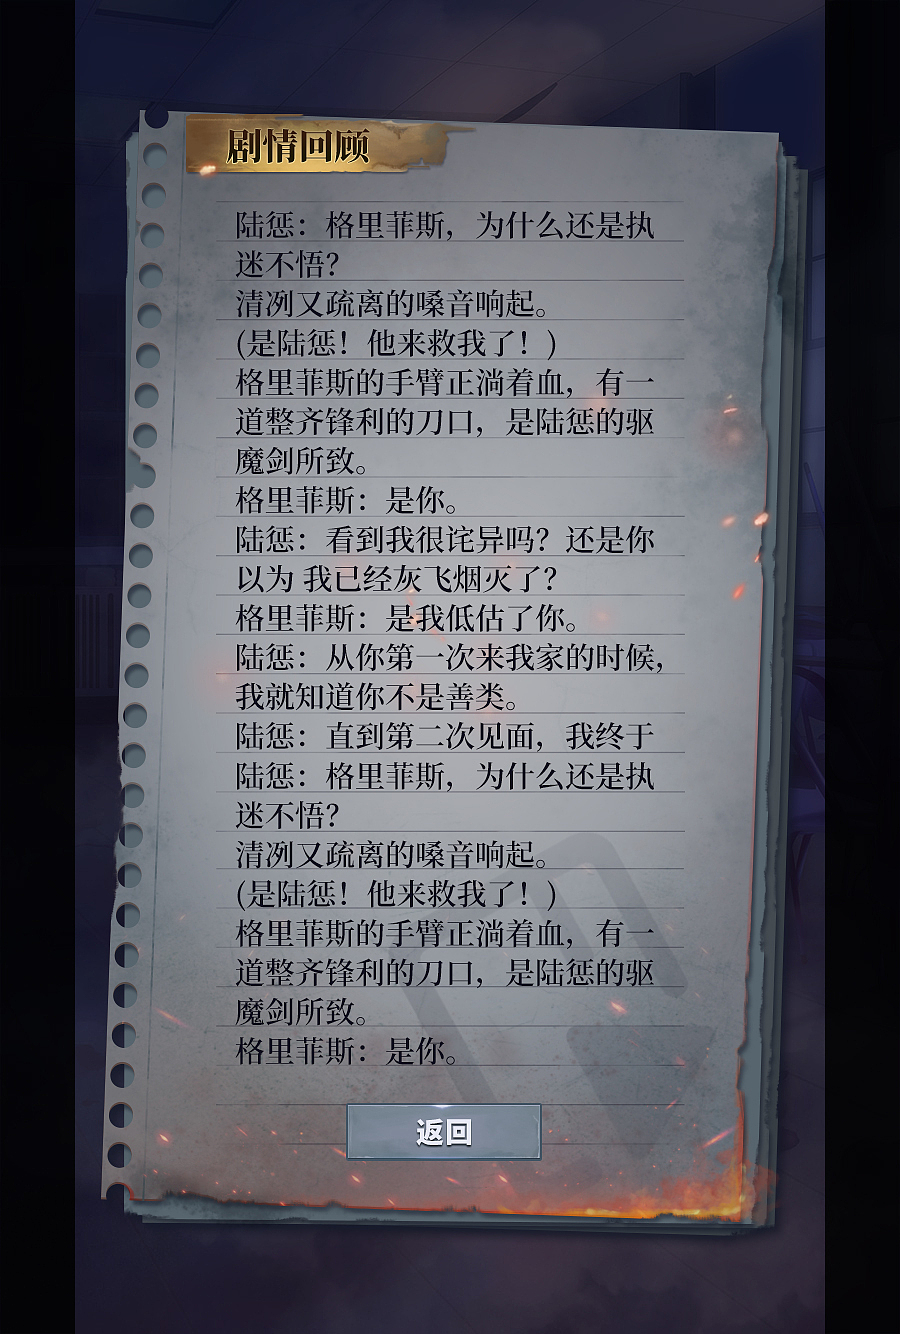 剧情回顾
陆惩：格里菲斯，为什么还是执
迷不悟？
清冽又疏离的嗓音响起。
(是陆惩！他来救我了！)
格里菲斯的手臂正淌着血，有一
道整齐锋利的刀口，是陆惩的驱
魔剑所致。
格里菲斯：是你。
陆惩：看到我很诧异吗？还是你
以为 我已经灰飞烟灭了？
格里菲斯：是我低估了你。
陆惩：从你第一次来我家的时候，
我就知道你不是善类。
陆惩：直到第二次见面，我终于
陆惩：格里菲斯，为什么还是执
迷不悟？
清冽又疏离的嗓音响起。
(是陆惩！他来救我了！)
格里菲斯的手臂正淌着血，有一
道整齐锋利的刀口，是陆惩的驱
魔剑所致。
格里菲斯：是你。
返回